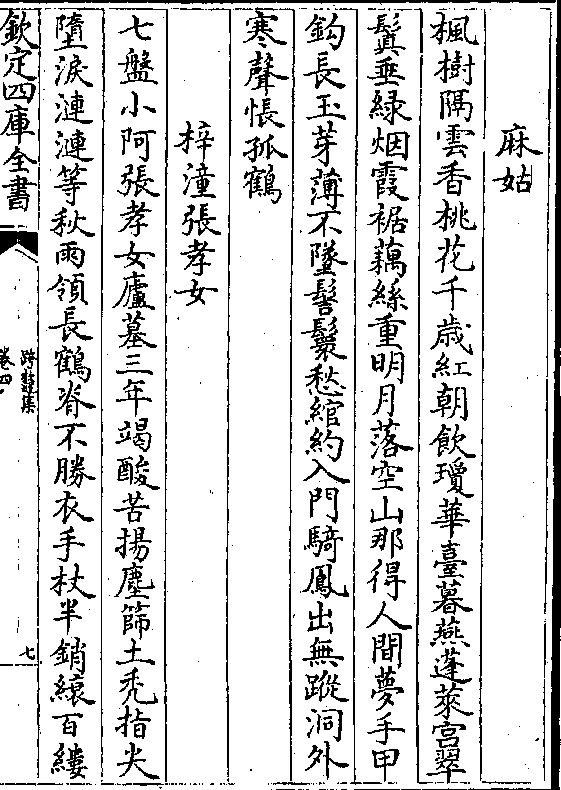 麻姑
楓樹隔雲香桃花千歲紅朝飲瓊華臺暮燕蓬萊宫翠
鬂垂緑烟霞裾藕絲重明月落空山那得人間夢手甲
鈎長玉芽薄不墜髻鬟愁綰約入門騎鳳出無蹤洞外
寒聲悵孤鶴
梓潼張孝女
七盤小阿張孝女廬墓三年竭酸苦揚塵篩土秃指尖
墮淚漣漣等秋雨領長鶴脊不勝衣手杖半銷纕百縷
欽定四庫全書
卷四
七